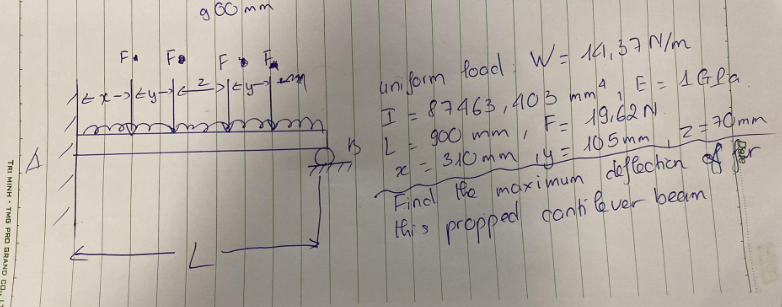 900 mm
F F F F
x y z y
A
B
L
uniform load: W = 14,37 N/m
I = 87463,403 mm⁴, E = 1 GPa
L = 900 mm, F = 19,62 N
x = 310mm, y = 105mm, z = 70mm
Find the maximum deflection of for
this propped cantilever beam
TRI MINH - TMG PRO GRAND CO.,